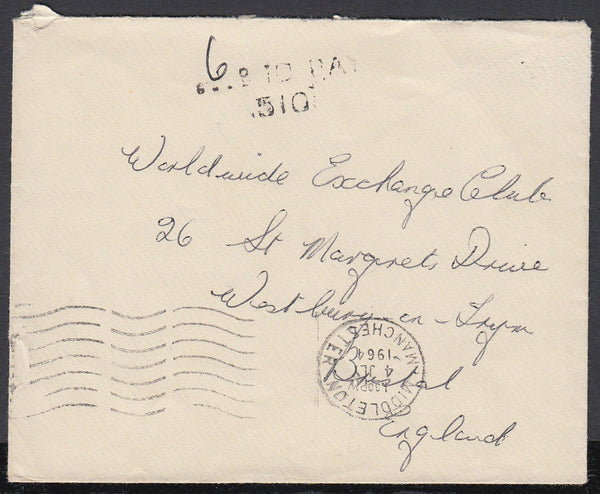 6 TO PAY
510
Worldwide Exchange Club
26 St Margarets Drive
Westbury-on-Trym
Bristol
England
MIDDLETON
MANCHESTER
4 JLY
1964